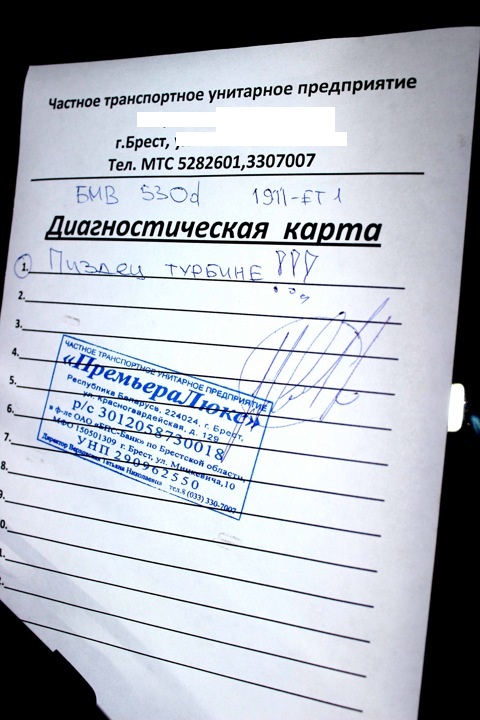 Частное транспортное унитарное предприятие
г.Брест,
Тел. МТС 5282601,3307007
БМВ 530d 1911-ET 1
Диагностическая карта
1. Пиздец ТУРБИНЕ !!!
2.
3.
4.
5.
6.
7.
8.
9.
0.
1.
2.
ЧАСТНОЕ ТРАНСПОРТНОЕ УНИТАРНОЕ ПРЕДПРИЯТИЕ
«ПремьераЛюкс»
Республика Беларусь, 224024, г. Брест,
ул. Красногвардейская, д. 129
р/с 3012058730018
в ф-ле ОАО «БПС-Банк» по Брестской области,
МФО 150501309 г. Брест, ул. Мицкевича,10
УНП 290962550
Директор Татьяна Николаевна тел.8 (033) 330-7007